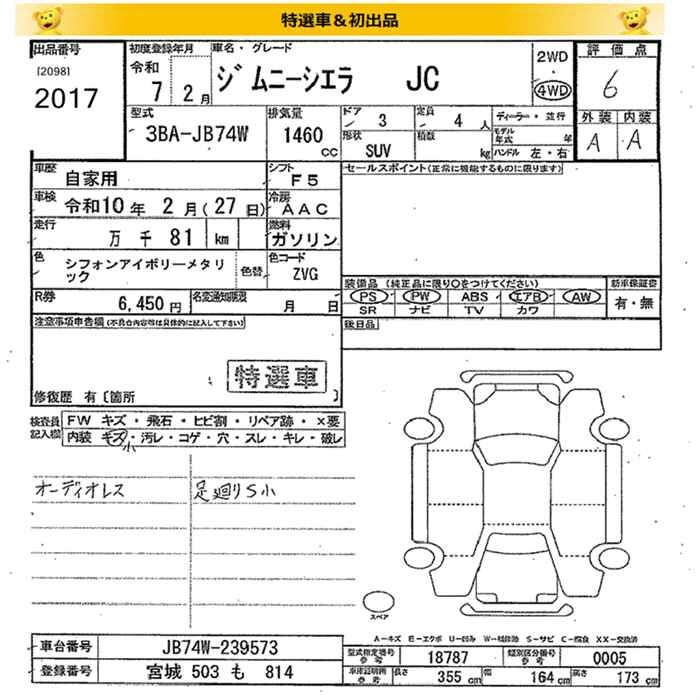 特選車＆初出品
出品番号
[2098]
2017
初度登録年月
令和
7 2月
車名・グレード
ジムニーシエラ JC
2WD
4WD
評価点
6
外装 内装
A A
型式
3BA-JB74W
排気量
1460
cc
ドア
3
定員
4 人
形状
SUV
積類
kg
ディーラー・並行
モデル年式 年
ハンドル 左・右
車歴
自家用
シフト
F5
車検
令和10年 2月(27日)
冷房
AAC
走行
万 千 81 km
燃料
ガソリン
色
シフォンアイボリーメタリ
ック
色替
色コード
ZVG
R券
6,450円
名変通知期限
月 日
セールスポイント(正常に機能するものに限ります)
装備品 (純正品に限り○をつけてください)
PS PW ABS エアB AW
SR ナビ TV カワ
新車保証書
有・無
後日品
注意事項申告欄 (不具合内容等は具体的に記入して下さい)
特選車
修復歴 有〔箇所 〕
検査員
記入欄
FW キズ・飛石・ヒビ割・リペア跡・×要
内装 キズ・汚レ・コゲ・穴・スレ・キレ・破レ
小
オーディオレス
足廻りS小
スペア
A−キズ E−エクボ U−凹み W−補修跡 S−サビ C−腐食 XX−交換済
車台番号
JB74W-239573
登録番号
宮城 503 も 814
型式指定番号
参考
18787
類別区分番号
参考
0005
車庫証明用
参考
長さ
355 cm
幅
164 cm
高さ
173 cm